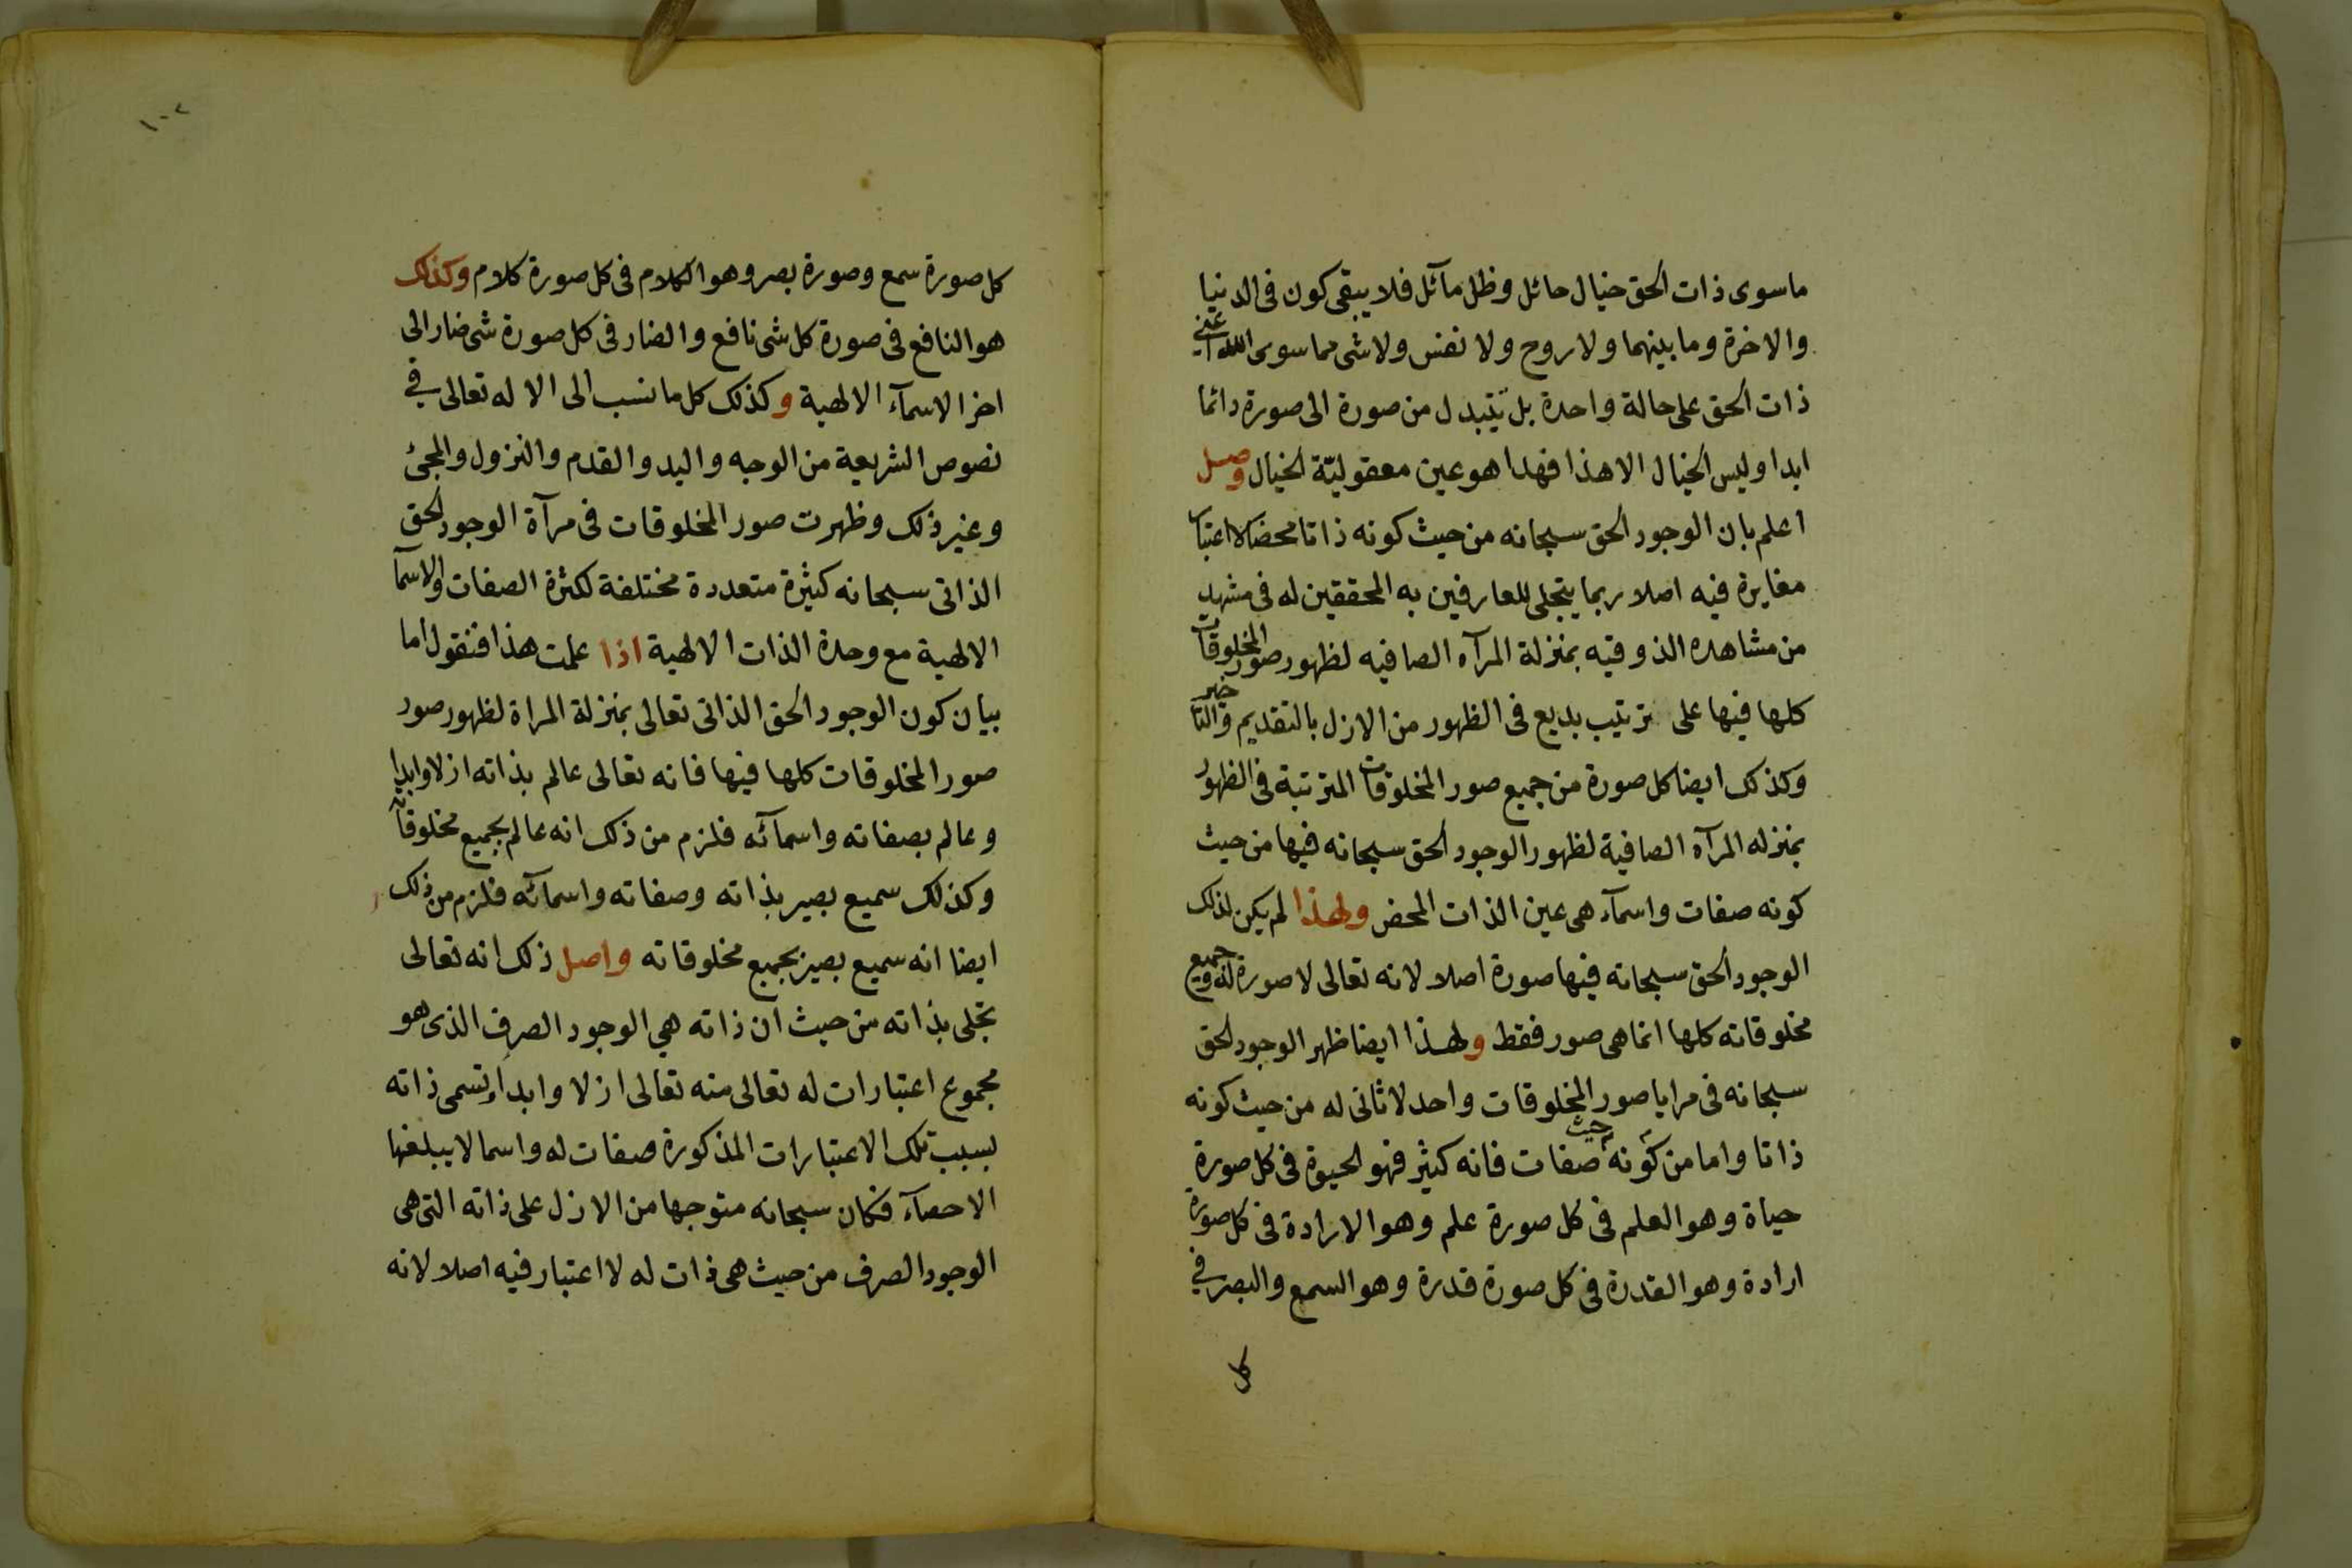 ما سوى ذات الحق خيال حائل وظل مآئل فلا يبقى كون فى الدنيا
والاخرة وما بينهما ولا روح ولا نفس ولا شى مما سوى الله اعنى
ذات الحق على حالة واحدة بل تتبدل من صورة الى صورة دائما
ابدا وليس الخيال الا هذا فهذا هو عين معقوليّة الخيال وصل
اعلم بان الوجود الحق سبحانه من حيث كونه ذاتا محضا لا اعتبار
مغايرة فيه اصلا ربما يتجلى للعارفين به المحققين له فى مشهد
من مشاهده الذوقيه بمنزلة المرآه الصافيه لظهور صور المخلوقات
كلها فيها على ترتيب بديع فى الظهور من الازل بالتقديم والتاخير
وكذلك ايضا كل صورة من جميع صور المخلوقات المترتبة فى الظهور
بمنزله المرآه الصافية لظهور الوجود الحق سبحانه فيها من حيث
كونه صفات واسمآء هى عين الذات المحض ولهذا لم يكن لذلك
الوجود الحق سبحانه فيها صورة اصلا لانه تعالى لا صورة له وجميع
مخلوقاته كلها انما هى صور فقط ولهذا ايضا ظهر الوجود الحق
سبحانه فى مرايا صور المخلوقات واحد لا ثانى له من حيث كونه
ذاتا واما من حيث كونه صفات فانه كثير فهو الحيوة فى كل صورة
حياة وهو العلم فى كل صورة علم وهو الارادة فى كل صورة
ارادة وهو القدرة فى كل صورة قدرة وهو السمع والبصر في
كل
١٠٢
كل صورة سمع وصورة بصر وهو الكلام فى كل صورة كلام وكذلك
هو النافع فى صورة كل شى نافع والضار فى كل صورة شى ضار الى
اخر الاسمآء الالهية وكذلك كل ما نسب الى الاله تعالى في
نصوص الشريعة من الوجه واليد والقدم والنزول والمجئ
وغير ذلك وظهرت صور المخلوقات فى مرآة الوجود الحق
الذاتى سبحانه كثيرة متعددة مختلفة لكثرة الصفات والاسمآ
الالهية مع وحدة الذات الالهية اذا علمت هذا فنقول اما
بيان كون الوجود الحق الذاتى تعالى بمنزلة المراة لظهور صور
صور المخلوقات كلها فيها فانه تعالى عالم بذاته ازلا وابدا
وعالم بصفاته واسمآئه فلزم من ذلك انه عالم بجميع مخلوقاته
وكذلك سميع بصير بذاته وصفاته واسمآئه فلزم من ذلك
ايضا انه سميع بصير بجميع مخلوقاته واصل ذلك انه تعالى
تجلى بذاته من حيث ان ذاته هي الوجود الصرف الذى هو
مجموع اعتبارات له تعالى منه تعالى ازلا وابدا وتسمى ذاته
بسبب تلك الاعتبارات المذكورة صفات له واسما لا يبلغها
الاحصآء فكان سبحانه متوجها من الازل على ذاته التى هى
الوجود الصرف من حيث هى ذات له لا اعتبار فيه اصلا لانه